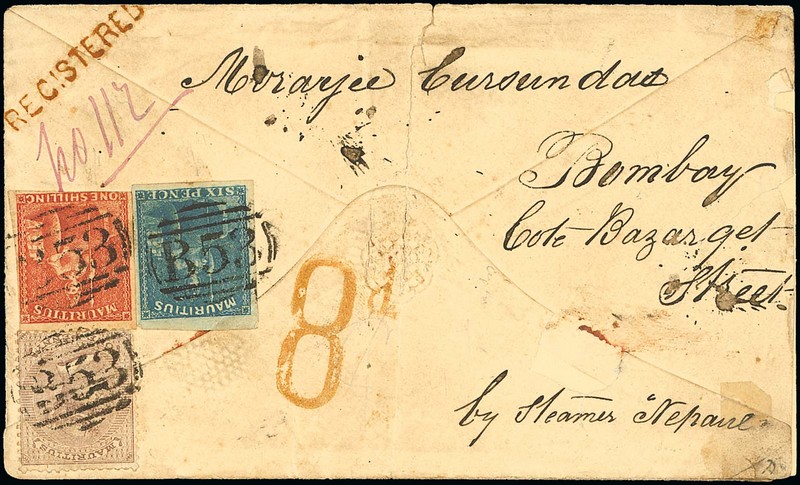 REGISTERED
No. 112
Morarjee Cursundas
Bombay
Cote Bazar get
Street
by Steamer "Nepaul"
8d
ONE SHILLING
MAURITIUS
B53
SIX PENCE
MAURITIUS
B53
MAURITIUS
B53